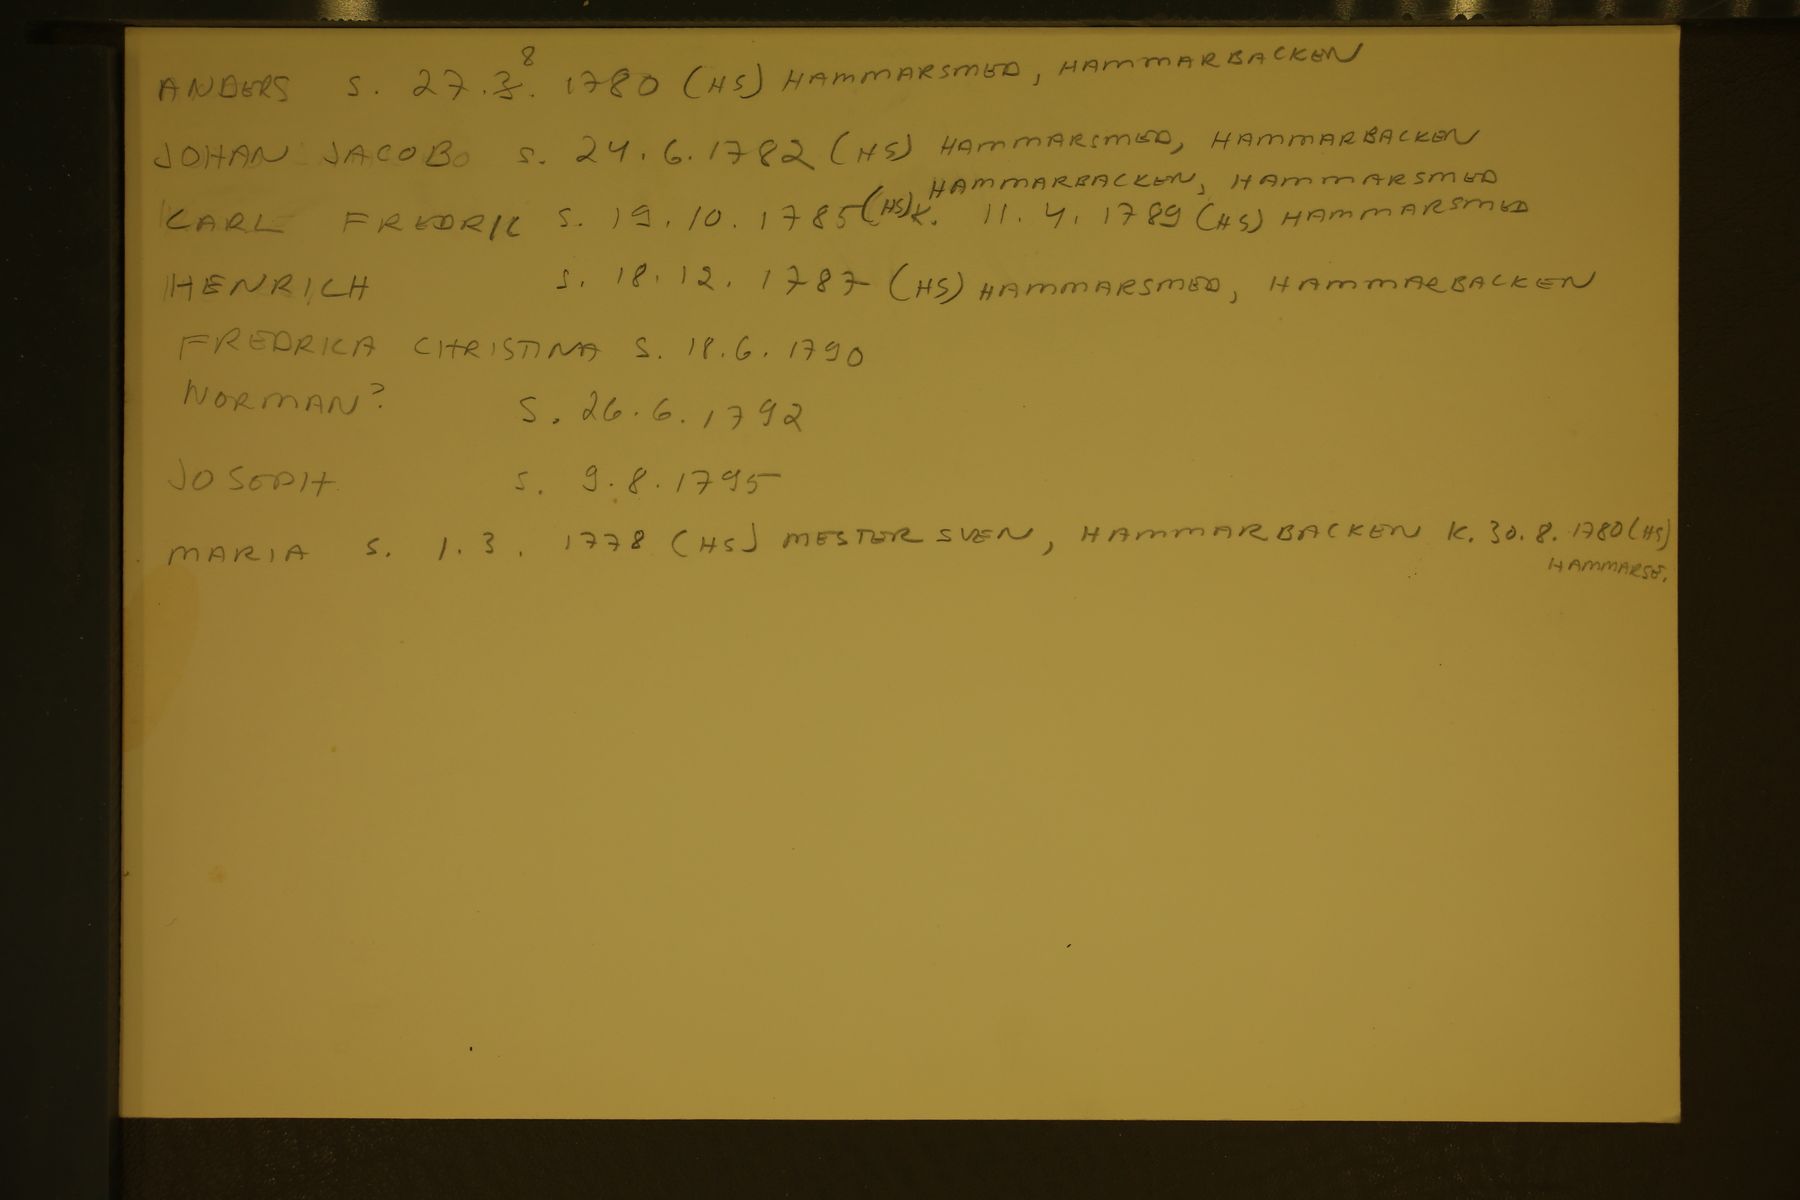 ANDERS S. 27.8. 1780 (HS) HAMMARSMED, HAMMARBACKEN
JOHAN JACOB S. 24.6.1782 (HS) HAMMARSMED, HAMMARBACKEN
HAMMARBACKEN, HAMMARSMED
CARL FREDRIC S. 19.10.1785 (HS) K. 11.4.1789 (HS) HAMMARSMED
HENRICH S. 18.12.1787 (HS) HAMMARSMED, HAMMARBACKEN
FREDRICA CHRISTINA S. 18.6.1790
NORMAN? S. 26.6.1792
JOSEPH S. 9.8.1795
MARIA S. 1.3.1778 (HS) MESTER SVEN, HAMMARBACKEN K. 30.8.1780 (HS)
HAMMARSE.